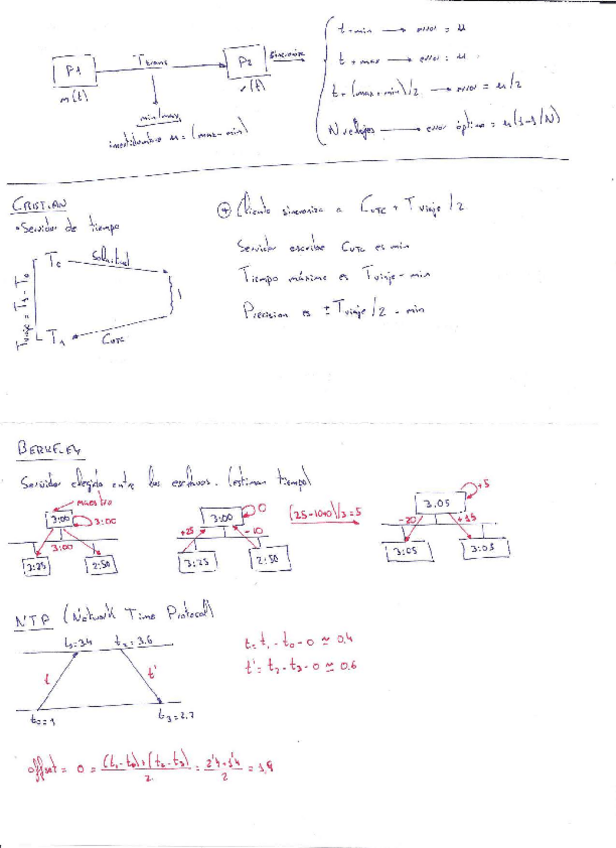 P1 Ttrans P2 sincroniza
m(t) r(t)
min/max
incertidumbre u = (max-min)
t = min → error = u
t = max → error = u
t = (max+min)/2 → error = u/2
N relojes → error óptimo = u(1-1/N)
CRISTIAN
• Servidor de tiempo
Tviaje = T1 - T0
T0 Solicitud
T1 CUTC
I
Cliente sincroniza a CUTC + Tviaje/2
Servidor escribe CUTC es min
Tiempo máximo es Tviaje - min
Precision es ± Tviaje/2 - min
BERKELEY
Servidor elegido entre los esclavos. (estiman tiempo)
maestro
3:00 3:00
3:00
3:25 2:50
3:00 0
+25 -10
3:25 2:50
(25-10+0)/3=5
3.05 +5
-20 +15
3:05 3:05
NTP (Network Time Protocol)
t1=3.4 t2=3.6
t t'
t0=1 t3=2.2
t = t1 - t0 - 0 ≃ 0,4
t' = t2 - t3 - 0 ≃ 0,6
offset = 0 = (t1-t0)+(t2-t3)/2 = 2'4+1'4/2 = 1,9